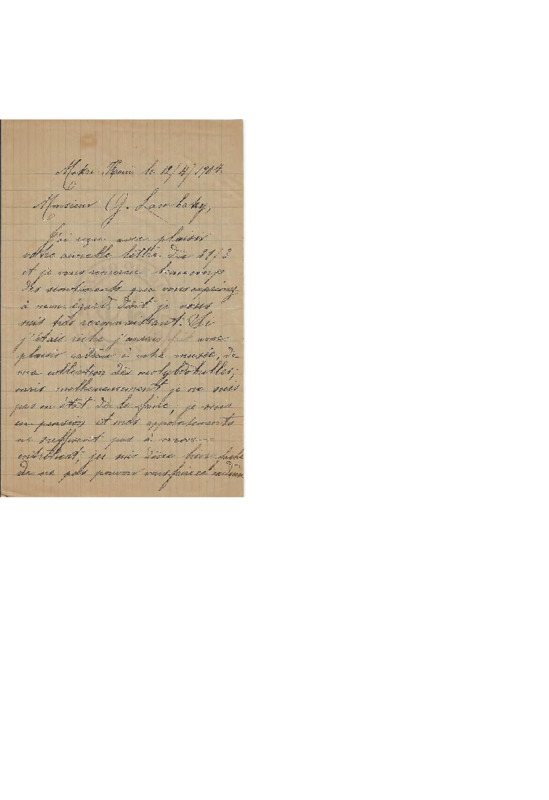 le 12/4/1904.
Monsieur G. Lambatty,
J'ai reçu avec plaisir
votre aimable lettre du
et je vous remercie beaucoup
des sentiments que vous exprimez
à mon égard dont je vous
suis très reconnaissant. Si
j'étais riche j'aurai fait avec
plaisir cadeau à votre musée, de
ma collection des
mais malheureusement je ne suis
pas en état de le faire, je suis
en pension et mes appointements
ne suffisent pas à mon
entretient, je suis donc bien fâché
de ne pas pouvoir vous faire ce cadeau